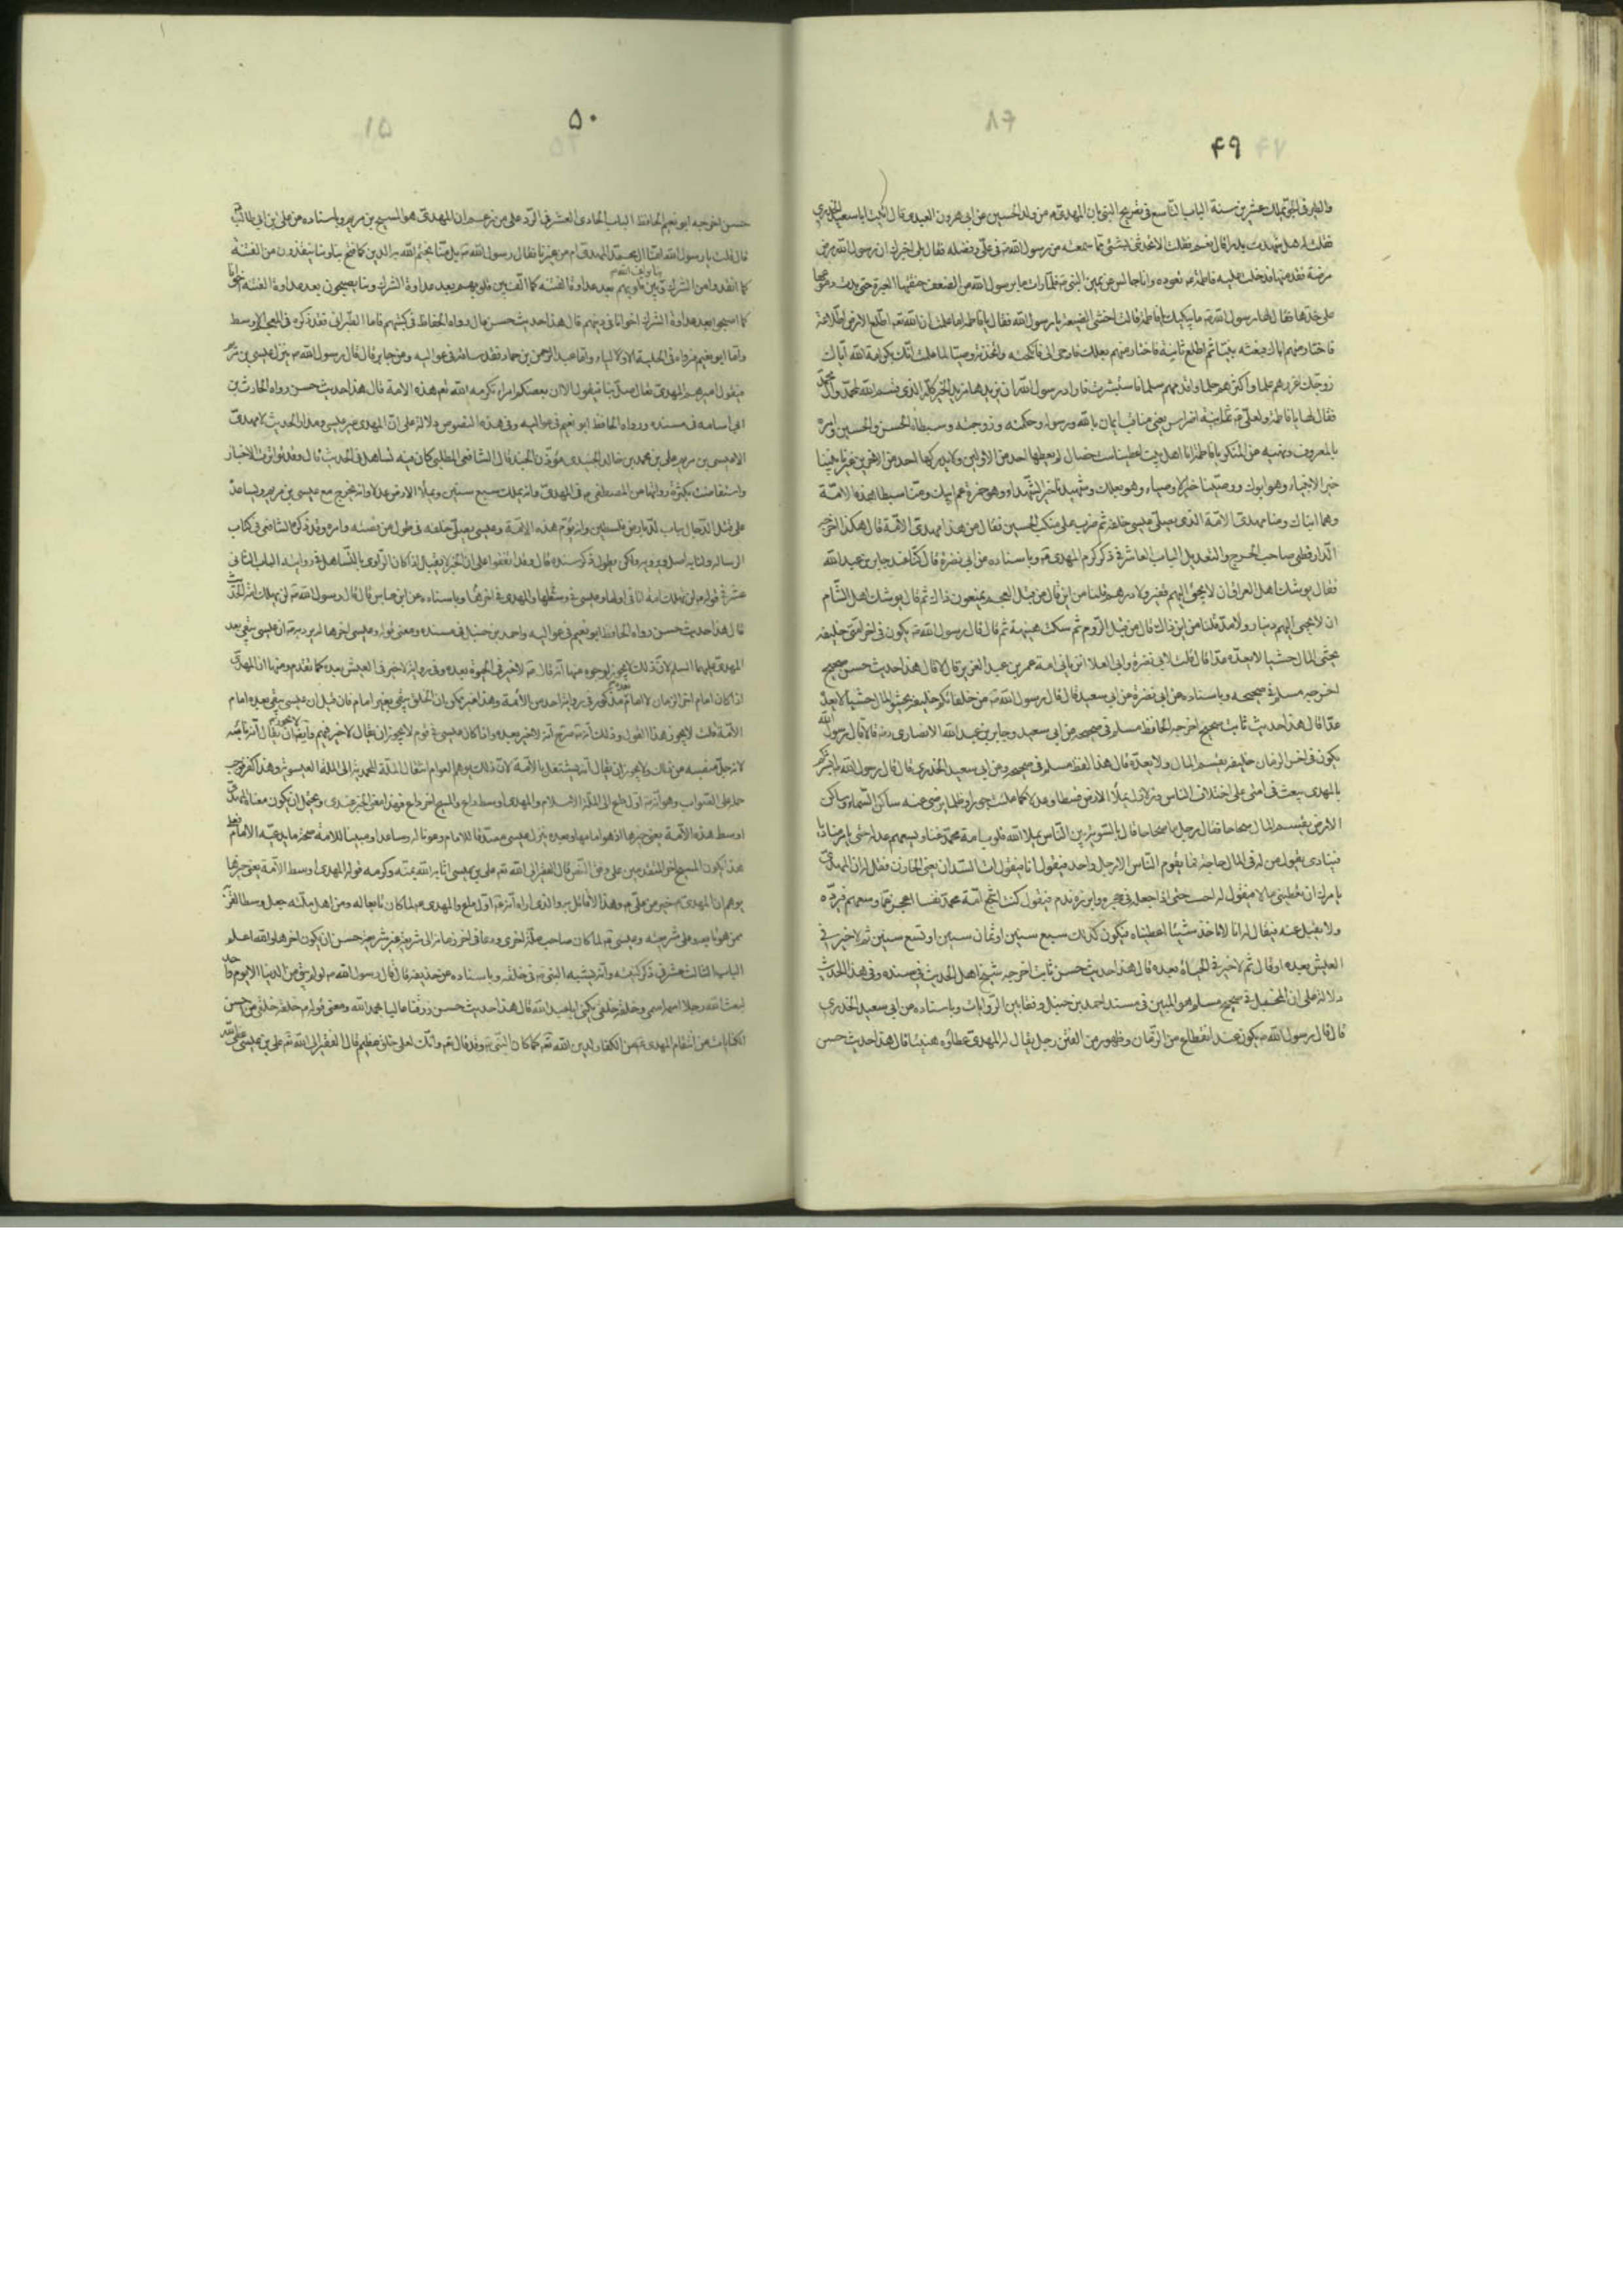 ۴۹
والطير في الجو يملك عشرين سنة الباب التاسع في تصريح النبي بان المهدي من ولد الحسين عن ابي هرون العبدي قال اتيت ابا سعيد الخدري
فقلت له هل شهدت بدرا قال نعم فقلت الا تحدثني بشئ مما سمعته من رسول الله ص في علي وفضله فقال بلى اخبرك ان رسول الله مرض
مرضة نقه منها فدخلت عليه فاطمة تعوده وانا جالس عن يمين النبي ص فلما رات ما برسول الله من الضعف خنقتها العبرة حتى بدت دموعها
على خدها فقال لها رسول الله ص ما يبكيك يا فاطمة قالت اخشى الضيعة يا رسول الله فقال يا فاطمة اما علمت ان الله تعم اطلع الى الارض اطلاعة
فاختار منهم اباك فبعثه نبيا ثم اطلع ثانية فاختار منهم بعلك فاوحى الى فانكحته واتخذته وصيا اما علمت انك بكرامة الله اياك
زوجك اغزرهم علما واكثرهم حلما واقدمهم سلما فاستبشرت فاراد رسول الله ان يزيدها مزيد الخير كله الذي قسمه الله لمحمد وال محمد
فقال لها يا فاطمة ولعلي ثمانية اضراس يعني مناقب ايمان بالله ورسوله وحكمته وزوجته وسبطاه الحسن والحسين وامره
بالمعروف ونهيه عن المنكر يا فاطمة انا اهل بيت اعطينا ست خصال لم يعطها احد من الاولين ولا يدركها احد من الاخرين غيرنا نبينا
خير الانبياء وهو ابوك ووصينا خير الاوصياء وهو بعلك وشهيدنا خير الشهداء وهو حمزة عم ابيك ومنا سبطا هذه الامة
وهما ابناك ومنا مهدي الامة الذي يصلي عيسى خلفه ثم ضرب على منكب الحسين فقال من هذا مهدي الامة قال هكذا اخرجه
الدارقطني صاحب الجرح والتعديل الباب العاشر في ذكر كرم المهدي وباسناده عن ابي نضرة قال كنا عند جابر بن عبد الله
فقال يوشك اهل العراق ان لا يجئ اليهم قفيز ولا درهم قلنا من اين قال من قبل العجم يمنعون ذاك ثم قال يوشك اهل الشام
ان لا يجئ اليهم دينار ولا مد قلنا من اين ذاك قال من قبل الروم ثم سكت هنيهة ثم قال قال رسول الله ص يكون في اخر امتي خليفة
يحثي المال حثيا لا يعده عدا قال قلت لابي نضرة وابي العلا اتريانه عمر بن عبد العزيز قالا لا قال هذا حديث حسن صحيح
اخرجه مسلم في صحيحه وباسناده عن ابي نضرة عن ابي سعيد قال قال رسول الله ص من خلفائكم خليفة يحثو المال حثيا لا يعده
عدا قال هذا حديث ثابت صحيح اخرجه الحافظ مسلم في صحيحه عن ابي سعيد وجابر بن عبد الله الانصاري قالا قال رسول الله
يكون في اخر الزمان خليفة يقسم المال ولا يعده قال هذا لفظ مسلم في صحيحه وعن ابي سعيد الخدري قال قال رسول الله ابشركم
بالمهدي يبعث في امتي على اختلاف الناس وزلازل يملأ الارض قسطا وعدلا كما ملئت جورا وظلما يرضى عنه ساكن السماء وساكن
الارض يقسم المال صحاحا فقال رجل ما صحاحا قال بالسوية بين الناس يملا الله قلوب امة محمد غناء ويسعهم عدله حتى يامر مناديا
فينادي يقول من له في المال حاجة فما يقوم الناس الا رجل واحد فيقول انا فيقول ائت السدان يعني الخازن فقل له ان المهدي
يامرك ان تعطيني مالا فيقول له احث حتى اذا جعله في حجره وابرزه ندم فيقول كنت اجشع امة محمد نفسا اعجز عما وسعهم فيرده
ولا يقبل منه فيقال له انا لا ناخذ شيئا اعطيناه فيكون كذلك سبع سنين او ثمان سنين او تسع سنين ثم لا خير في
العيش بعده او قال ثم لا خير في الحياة بعده قال هذا حديث حسن ثابت اخرجه شيخ اهل الحديث في مسنده وفي هذا الحديث
دلالة على ان المجمل في صحيح مسلم هو المبين في مسند احمد بن حنبل وفقا بين الروايات وباسناده عن ابي سعيد الخدري
قال قال رسول الله ص يكون عند انقطاع من الزمان وظهور من الفتن رجل يقال له المهدي عطاؤه هنيئا قال هذا حديث حسن
۵۰
حسن اخرجه ابو نعيم الحافظ الباب الحادي العشر في الرد على من زعم ان المهدي هو المسيح بن مريم وباسناده عن علي بن ابي طالب
قال قلت يا رسول الله امنا ال محمد المهدي ام من غيرنا فقال رسول الله ص لا بل منا يختم الله به الدين كما فتح بنا وبنا ينقذون من الفتنة
كما انقذوا من الشرك وبنا يؤلف الله بين قلوبهم بعد عداوة الفتنة كما الف بين قلوبهم بعد عداوة الشرك وبنا يصبحون بعد عداوة الفتنة اخوانا
كما اصبحوا بعد عداوة الشرك اخوانا في دينهم قال هذا حديث حسن عال رواه الحفاظ في كتبهم فاما الطبراني فقد ذكره في المعجم الاوسط
واما ابو نعيم فرواه في حلية الاولياء واما عبد الرحمن بن حماد فقد ساقه في عواليه وعن جابر قال قال رسول الله ص ينزل عيسى بن مريم
فيقول اميرهم المهدي تعال صل بنا فيقول الا ان بعضكم امراء تكرمة الله تعم هذه الامة قال هذا حديث حسن رواه الحارث بن
ابي اسامة في مسنده ورواه الحافظ ابو نعيم في عواليه وفي هذه النصوص دلالة على ان المهدي غير عيسى ومدار الحديث لا مهدي
الا عيسى بن مريم علي بن محمد بن خالد الجندي مؤذن الجند قال الشافعي المطلبي كان فيه تساهل في الحديث قال وقد تواترت الاخبار
واستفاضت بكثرة رواتها عن المصطفى في المهدي وانه يملك سبع سنين ويملأ الارض عدلا وانه يخرج مع عيسى بن مريم ويساعده
على قتل الدجال بباب لد بارض فلسطين وانه يؤم هذه الامة وعيسى يصلي خلفه في طول من قصته وامره وقد ذكره الشافعي في كتاب
الرسالة ولنا به اصل ونرويه ولكن يطول ذكر سنده قال وقد اتفقوا على ان الخبر لا يقبل اذا كان الراوي بالتساهل في روايته الباب الثاني
عشر في قوله لن تهلك امة انا في اولها وعيسى في وسطها والمهدي في اخرها وباسناده عن ابن عباس قال قال رسول الله ص لن يهلك امة الحديث
قال هذا حديث حسن رواه الحافظ ابو نعيم في عواليه واحمد بن حنبل في مسنده ومعنى قوله وعيسى اخرها لم يرد به ان عيسى يبقى بعد
المهدي عليهما السلم لان ذلك لا يجوز لوجوه منها انه قال ص لا خير في الحيوة بعده وفي رواية لا خير في العيش بعده كما تقدم ومنها ان المهدي
اذا كان امام اخر الزمان لا امام بعده مذكور في رواية احد من الائمة وهذا غير ممكن ان الخلق يبقى بغير امام فان قيل ان عيسى يبقى بعده امام
الامة قلت لا يجوز هذا القول وذلك انه ص صرح انه لا خير بعده واذا كان عيسى في قوم لا يجوز ان يقال لا خير فيهم وايضا لا يجوز ان يقال انه نائبه
لانه جل منصبه عن ذلك ولا يجوز ان يقال انه يستقل بالامة لان ذلك يوهم العوام انتقال الملة المحمدية الى الملة العيسوية وهذا كفر فوجب
حمله على الصواب وهو انه ص اول داع الى الملة الاسلام والمهدي اوسط داع والمسيح اخر داع فهذا معنى الخبر عندي ويحتمل ان يكون معناه المهدي
اوسط هذه الامة يعني خيرها اذ هو امامها وبعده ينزل عيسى مصدقا للامام وعونا له ومساعدا ومبينا للامة صحة ما يدعيه الامام فعلى
هذا يكون المسيح اخر المصدقين على وفق النص قال الفقير الى الله تعم علي بن عيسى اثابه الله بمنه وكرمه قوله المهدي اوسط الامة يعني خيرها
يوهم ان المهدي خير من علي وهذا لا قائل به والذي اراه انه ص اول داع والمهدي لما كان تابعا له ومن اهل ملته جعل وسطا لقربه
ممن هو تابعه وعلى شريعته وعيسى لما كان صاحب ملة اخرى ودعا في اخر زمانه الى شريعة غير شريعته حسن ان يكون اخرها والله اعلم
الباب الثالث عشر في ذكر كنيته وانه يشبه النبي في خلقه وباسناده عن حذيفة قال قال رسول الله ص لو لم يبق من الدنيا الا يوم واحد
لبعث الله رجلا اسمه اسمي وخلقه خلقي يكنى ابا عبد الله قال هذا حديث حسن رزقناه عاليا بحمد الله ومعنى قوله خلقه خلقي من احسن
الكنايات عن انتقام المهدي من الكفار لدين الله تعم كما كان النبي وقد قال تعم وانك لعلى خلق عظيم قال الفقير الى الله تعم علي بن عيسى عفى الله